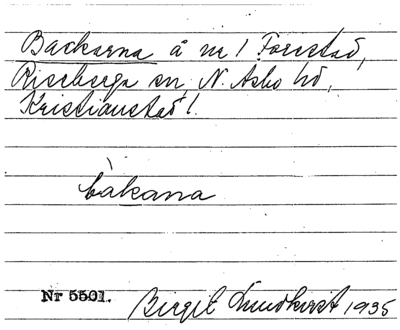 Backarna å nr 1 Forestad,
Riseberga sn, N. Åsbo hd,
Kristianstad l.
bàkana
Nr 5501. Birgit Lundkvist 1935